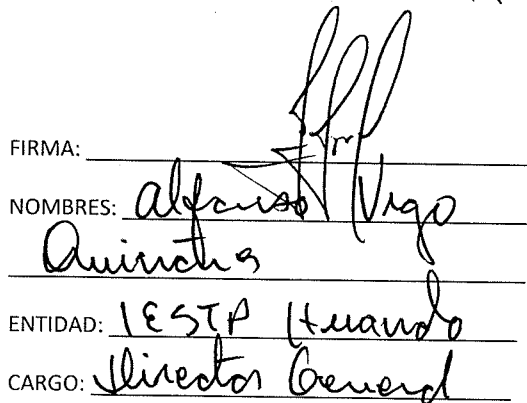 FIRMA:
NOMBRES: Alfonso Vigo
ENTIDAD: IESTP Huando
CARGO: Director General